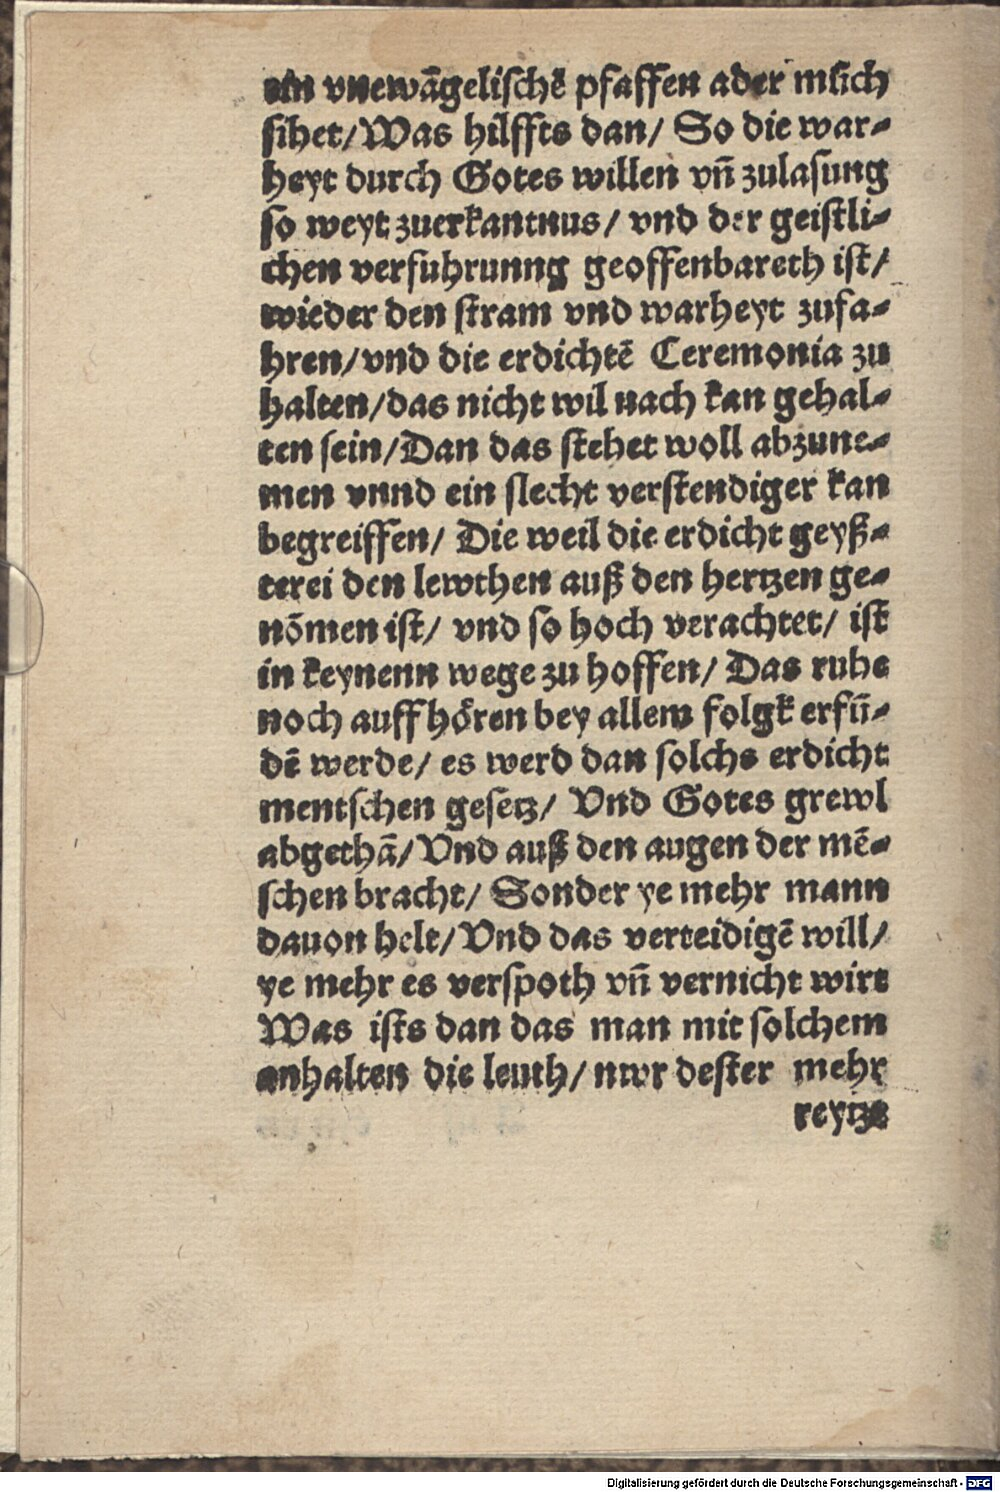 ein vnewāgelischē pfaffen ader mūch
sihet/Was hilffts dan/ So die war⸗
heyt durch Gotes willen vn̄ zulasung
so weyt zuerkantnus/ vnd der geistli⸗
chen verfuhrunng geoffenbareth ist/
wieder den stram vnd warheyt zufa⸗
hren/vnd die erdichtē Ceremonia zu
halten/das nicht wil nach kan gehal⸗
ten sein/Dan das stehet woll abzune⸗
men vnnd ein slecht verstendiger kan
begreiffen/ Die weil die erdicht geyß⸗
terei den lewthen auß den hertzen ge⸗
nōmen ist/ vnd so hoch verachtet/ ist
in keynenn wege zu hoffen/ Das ruhe
noch auff hören bey allem folgk erfū⸗
dē werde/ es werd dan solchs erdicht
mentschen gesetz/ Vnd Gotes grewl
abgethā/Vnd auß den augen der mē⸗
schen bracht/ Sonder ye mehr mann
dauon helt/Vnd das verteidigē will/
ye mehr es verspoth vn̄ vernicht wirt
Was ists dan das man mit solchem
anhalten die leuth/ nwr dester mehr
reytze
Digitalisierung gefördert durch die Deutsche Forschungsgemeinschaft - DFG